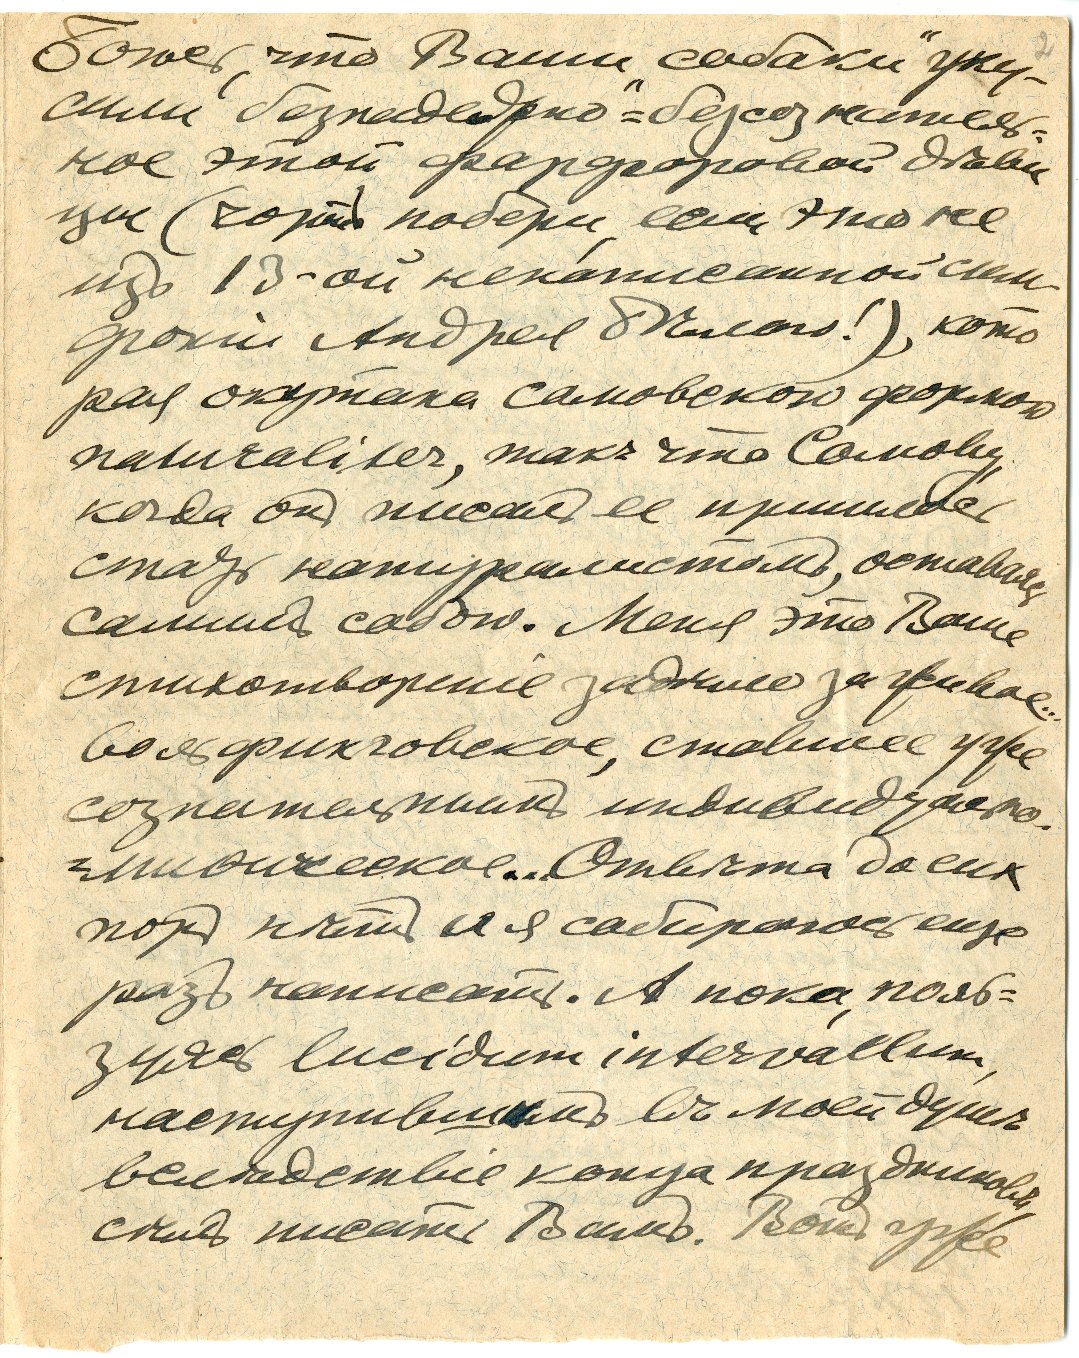 2
Боюсь, что Ваши собаки "уку-
сили безнадежно" = безсознатель=
ное этой фарфоровой дѣви
цы (чортъ побери, если это не
изъ 13-ой ненаписанной сим-
фоніи Андрея Бѣлаго!), кото
рая окутана сомовскою формою
naturaliter, такъ что Сомову,
когда онъ писалъ ее пришлось
стать натуралистомъ, оставаясь
самимъ собою. Меня это Ваше
стихотвореніе задѣло за живое...
вольфинговское, ставшее уже
сознательнымъ индивидуально-
миѳическое... Отвѣта до сихъ
поръ нѣтъ и я собираюсь еще
разъ написать. А пока, поль=
зуясь lucidum intervallum,
наступившимъ въ моей душѣ
вслѣдствіе конца праздниковъ,
сѣлъ писать Вамъ. Вотъ уже